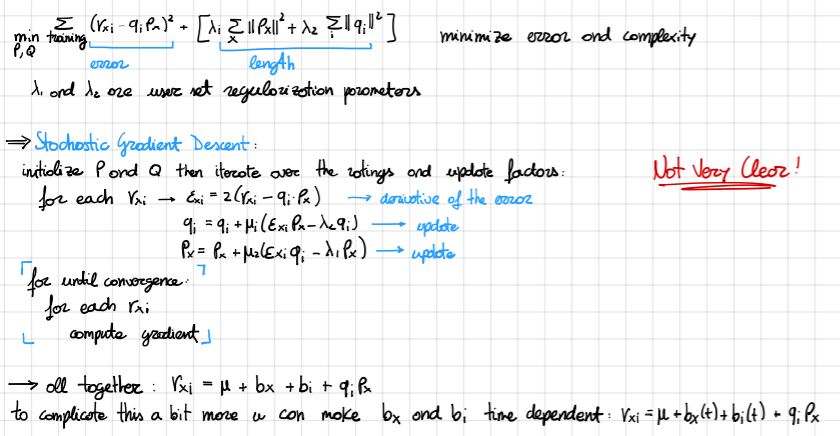 min P,Q Σ training (rxi - qi Px)² + [λ₁ Σx ||Px||² + λ₂ Σi ||qi||²] minimize error and complexity
error length
λ₁ and λ₂ are user set regularization parameters
⇒ Stochastic Gradient Descent:
initialize P and Q then iterate over the ratings and update factors:
Not Very Clear!
for each rxi → Ɛxi = 2(rxi - qi·Px) → derivative of the error
qi = qi + μ₁(Ɛxi Px - λ₂qi) → update
Px = Px + μ₂(Ɛxi qi - λ₁Px) → update
for until convergence:
for each rxi
compute gradient
→ all together: rxi = μ + bx + bi + qi Px
to complicate this a bit more u can make bx and bi time dependent: rxi = μ + bx(t) + bi(t) + qi Px